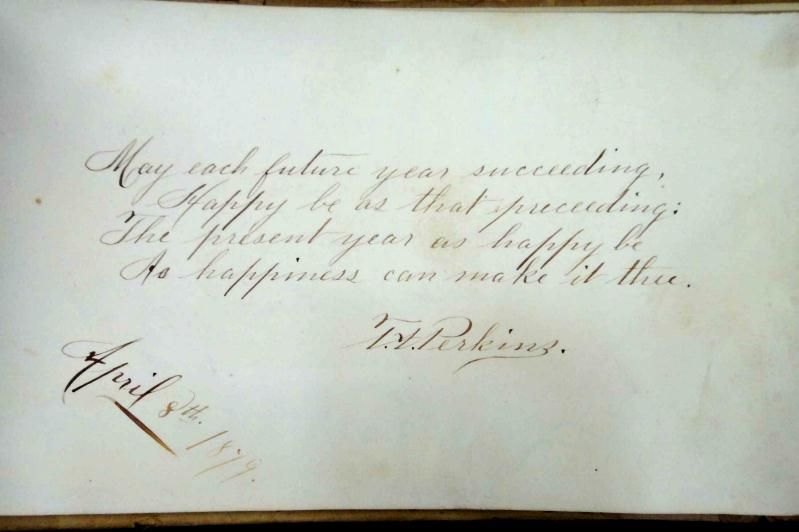 May each future year succeeding,
Happy be as that preceeding:
The present year as happy be
As happiness can make it thee.
T.A. Perkins.
April 8th. 1879.